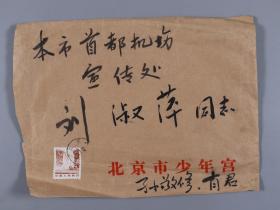 本市首都机场
宣传处
刘淑萍同志
北京市少年宫
孙敬修、肖君